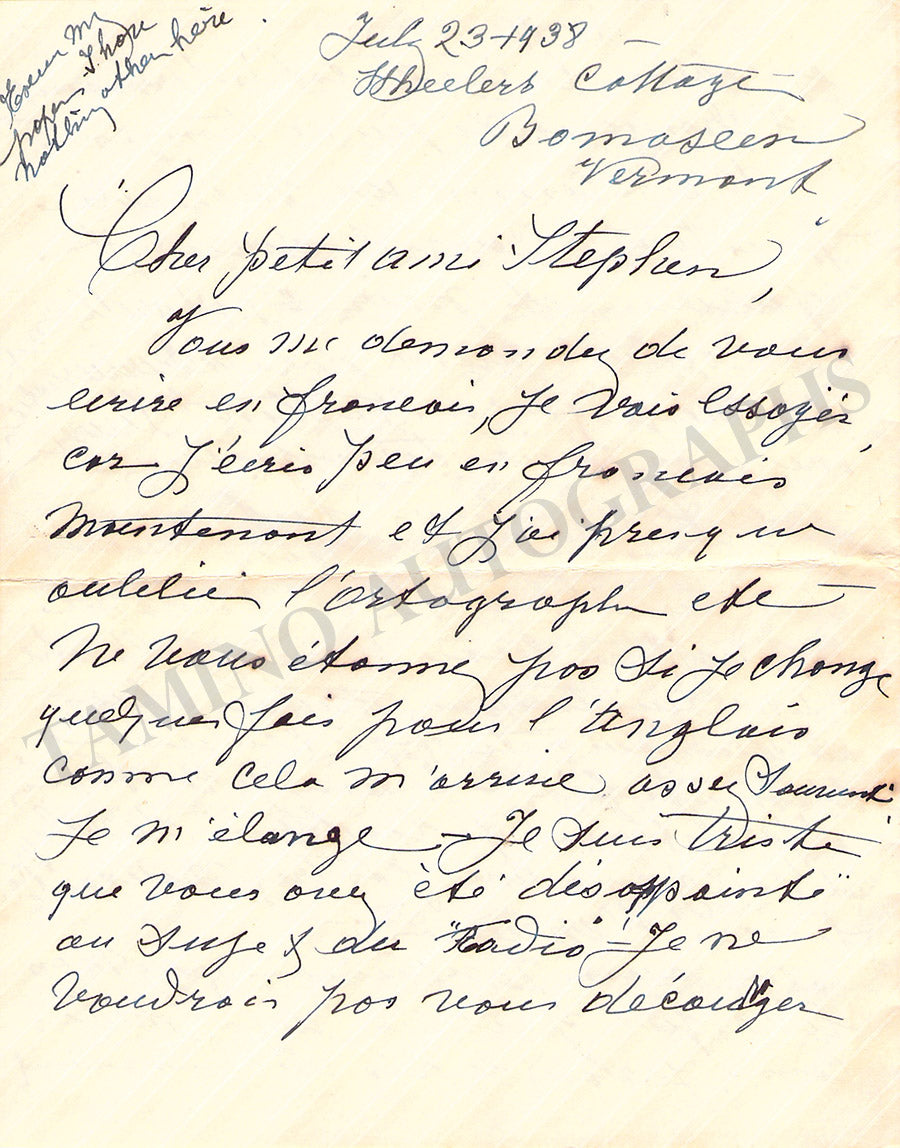 Excuse my
paper I have
nothing other here.
July 23 - 1938
Wheelers Cottage
Bomoseen
Vermont
Cher petit ami Stephen,
Vous me demandez de vous
ecrire en francais, Je vais essayer,
car J'écris peu en francais
maintenant et j'ai presque
oublier l'ortographe etc
Ne vous étonnez pas si Je change
quelques fois pour l'Anglais
comme cela m'arrive assez souvent
Je m'élange - Je suis triste
que vous avez été "désappointé"
au sujet du "Radio" - Je ne
voudrais pas vous décourager
TAMINO AUTOGRAPHS